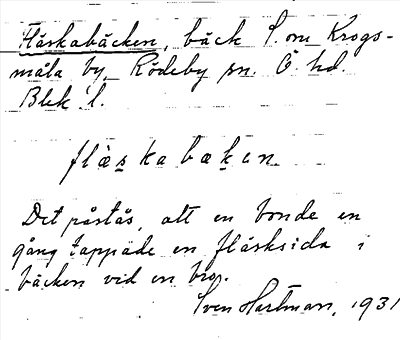 Fläskabäcken, bäck S. om Krogs-
måla by, Rödeby sn. Ö. hd.
Blek. l.
flàs̱kabæḵen
Det påstås, att en bonde en
gång tappade en fläsksida i
bäcken vid en bro.
Sven Hartman, 1931